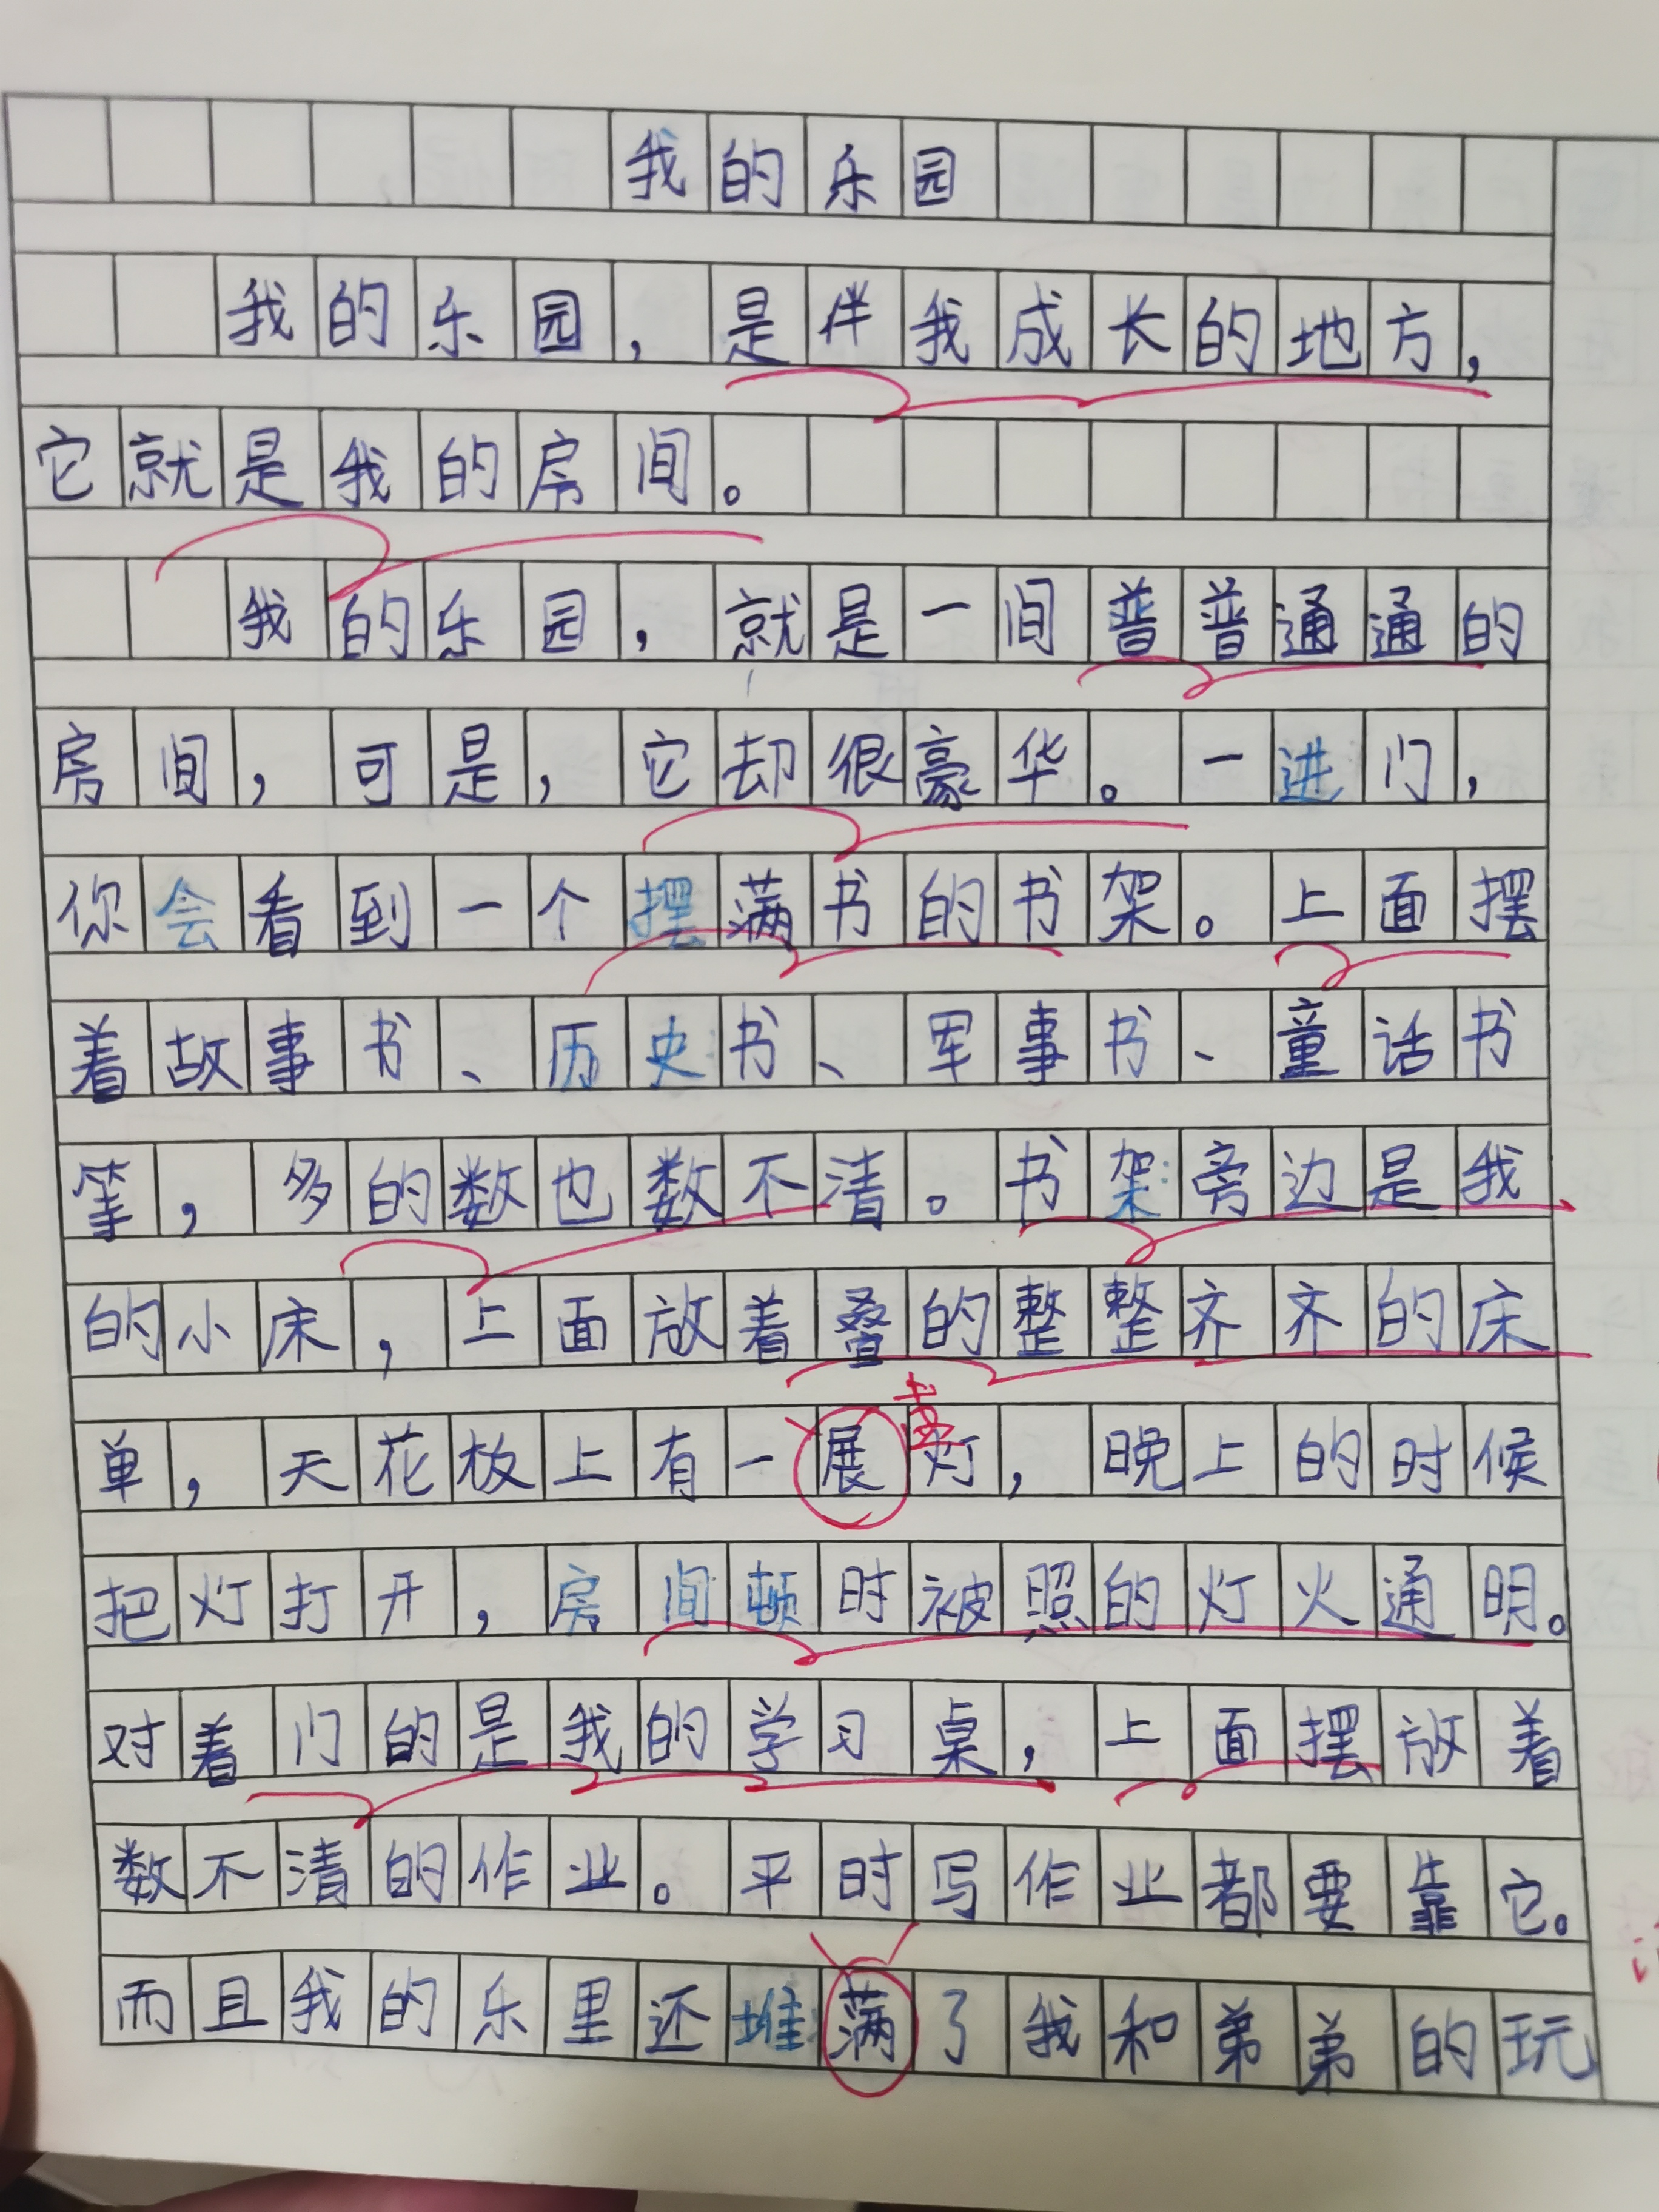 我的乐园
我的乐园，是伴我成长的地方，
它就是我的房间。
我的乐园，就是一间普普通通的
房间，可是，它却很豪华。一进门，
你会看到一个摆满书的书架。上面摆
着故事书、历史书、军事书、童话书
等，多的数也数不清。书架旁边是我
的小床，上面放着叠的整整齐齐的床
单，天花板上有一展灯，晚上的时候
把灯打开，房间顿时被照的灯火通明。
对着门的是我的学习桌，上面摆放着
数不清的作业。平时写作业都要靠它。
而且我的乐里还堆满了我和弟弟的玩